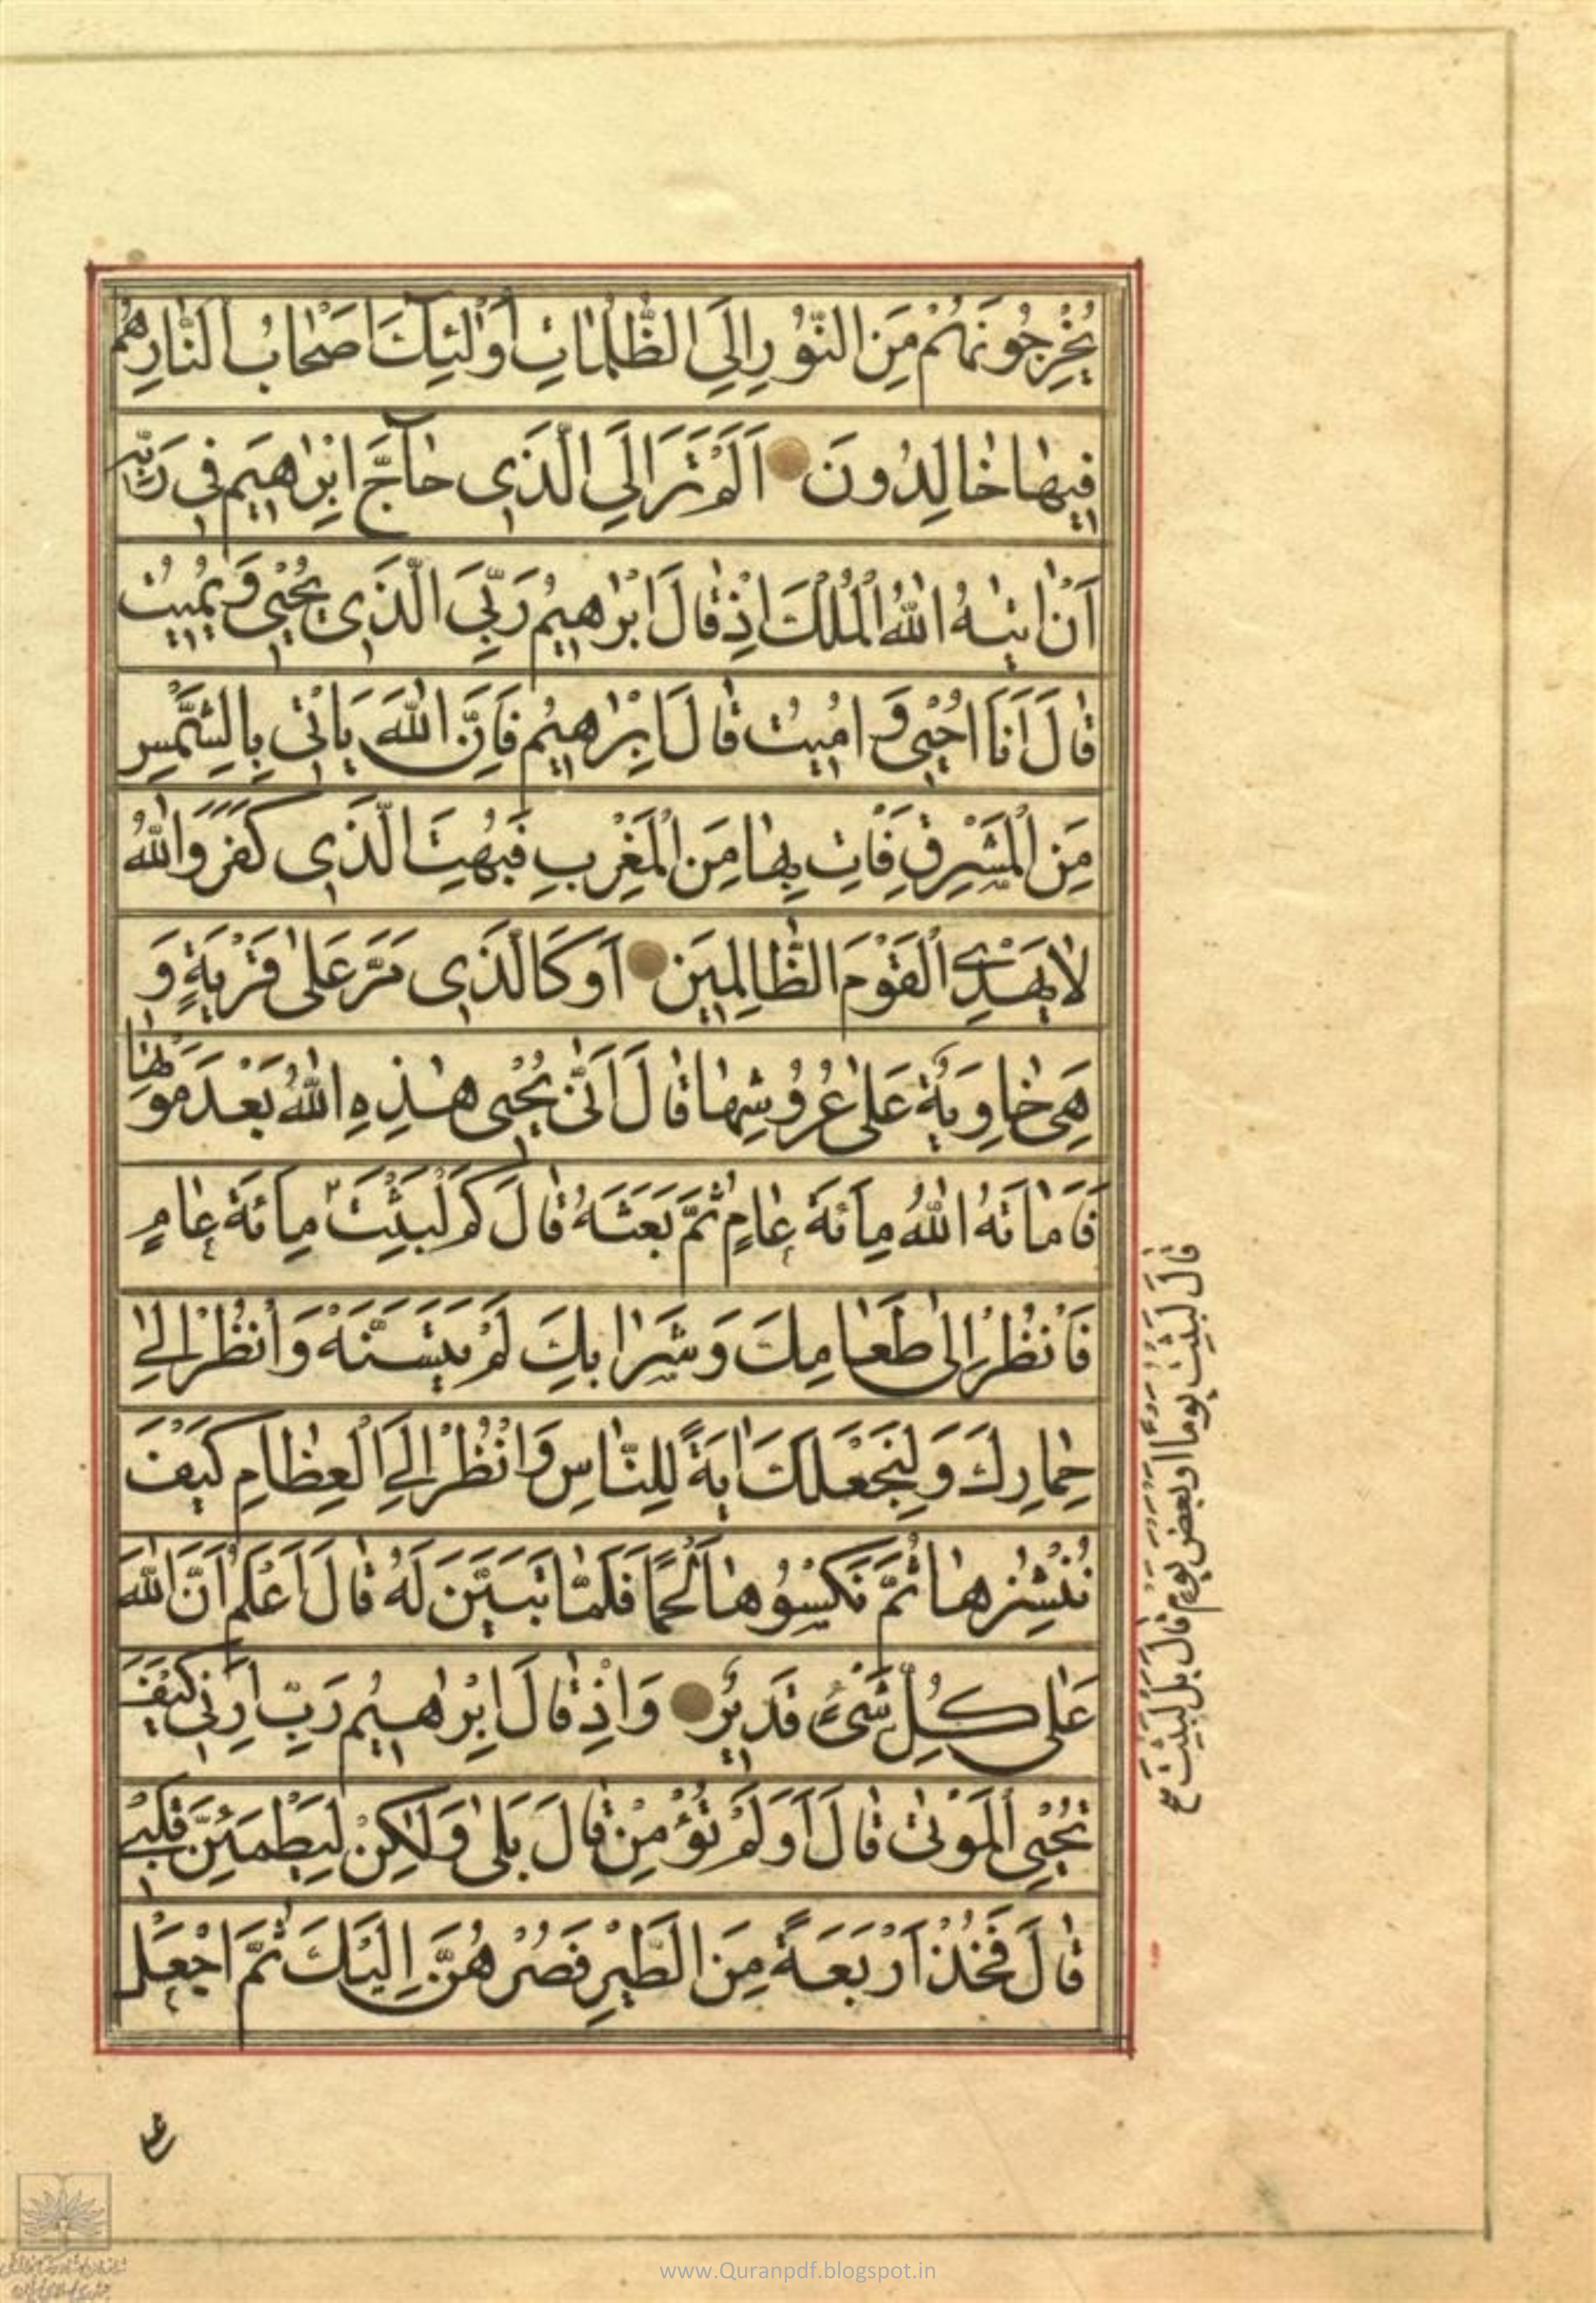 يُخْرِجُونَهُمْ مِنَ النُّورِ اِلَى الظُّلُمَاتِ اُولٰئِكَ اَصْحَابُ النَّارِ هُمْ
فِيهَا خَالِدُونَ اَلَمْ تَرَ اِلَى الَّذِي حَاجَّ اِبْرَاهِيمَ فِي رَبِّهِ
اَنْ اتٰيهُ اللّٰهُ الْمُلْكَ اِذْ قَالَ اِبْرَاهِيمُ رَبِّيَ الَّذِي يُحْيِي وَيُمِيتُ
قَالَ اَنَا اُحْيِي وَ اُمِيتُ قَالَ اِبْرَاهِيمُ فَاِنَّ اللّٰهَ يَاْتِي بِالشَّمْسِ
مِنَ الْمَشْرِقِ فَاْتِ بِهَا مِنَ الْمَغْرِبِ فَبُهِتَ الَّذِي كَفَرَ وَاللّٰهُ
لَا يَهْدِي الْقَوْمَ الظَّالِمِينَ اَوْ كَالَّذِي مَرَّ عَلٰى قَرْيَةٍ وَ
هِيَ خَاوِيَةٌ عَلٰى عُرُوشِهَا قَالَ اَنّٰى يُحْيِي هٰذِهِ اللّٰهُ بَعْدَ مَوْتِهَا
فَاَمَاتَهُ اللّٰهُ مِائَةَ عَامٍ ثُمَّ بَعَثَهُ قَالَ كَمْ لَبِثْتَ مِائَةَ عَامٍ
فَانْظُرْ اِلٰى طَعَامِكَ وَشَرَابِكَ لَمْ يَتَسَنَّهْ وَانْظُرْ اِلٰى
حِمَارِكَ وَلِنَجْعَلَكَ ايَةً لِلنَّاسِ وَانْظُرْ اِلَى الْعِظَامِ كَيْفَ
نُنْشِزُهَا ثُمَّ نَكْسُوهَا لَحْمًا فَلَمَّا تَبَيَّنَ لَهُ قَالَ اَعْلَمُ اَنَّ اللّٰهَ
عَلٰى كُلِّ شَيْءٍ قَدِيرٌ وَاِذْ قَالَ اِبْرَاهِيمُ رَبِّ اَرِنِي كَيْفَ
تُحْيِي الْمَوْتٰى قَالَ اَوَلَمْ تُؤْمِنْ قَالَ بَلٰى وَلٰكِنْ لِيَطْمَئِنَّ قَلْبِي
قَالَ فَخُذْ اَرْبَعَةً مِنَ الطَّيْرِ فَصُرْهُنَّ اِلَيْكَ ثُمَّ اجْعَلْ
قَالَ لَبِثْتُ يَوْمًا اَوْ بَعْضَ يَوْمٍ قَالَ بَلْ لَبِثْتَ
www.Quranpdf.blogspot.in